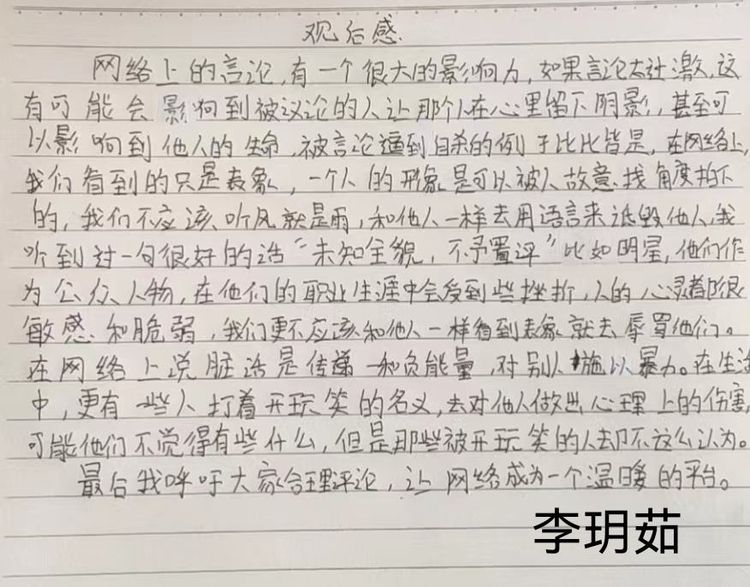 观后感
网络上的言论,有一个很大的影响力,如果言论太过激,这
有可能会影响到被议论的人让那个人在心里留下阴影,甚至可
以影响到他人的生命,被言论逼到自杀的例子比比皆是,在网络上,
我们看到的只是表象,一个人的形象是可以被人故意找角度拍下
的,我们不应该听风就是雨,和他人一样去用语言来诋毁他人,我
听到过一句很好的话“未知全貌,不予置评”比如明星,他们作
为公众人物,在他们的职业生涯中会受到些挫折,人的心灵都很
敏感和脆弱,我们更不应该和他人一样看到表象就去辱骂他们。
在网络上说脏话是传递一种负能量,对别人施以暴力。在生活
中,更有一些人打着开玩笑的名义,去对他人做出心理上的伤害,
可能他们不觉得有些什么,但是那些被开玩笑的人却不这么认为。
最后我呼吁大家合理评论,让网络成为一个温暖的平台。
李玥茹